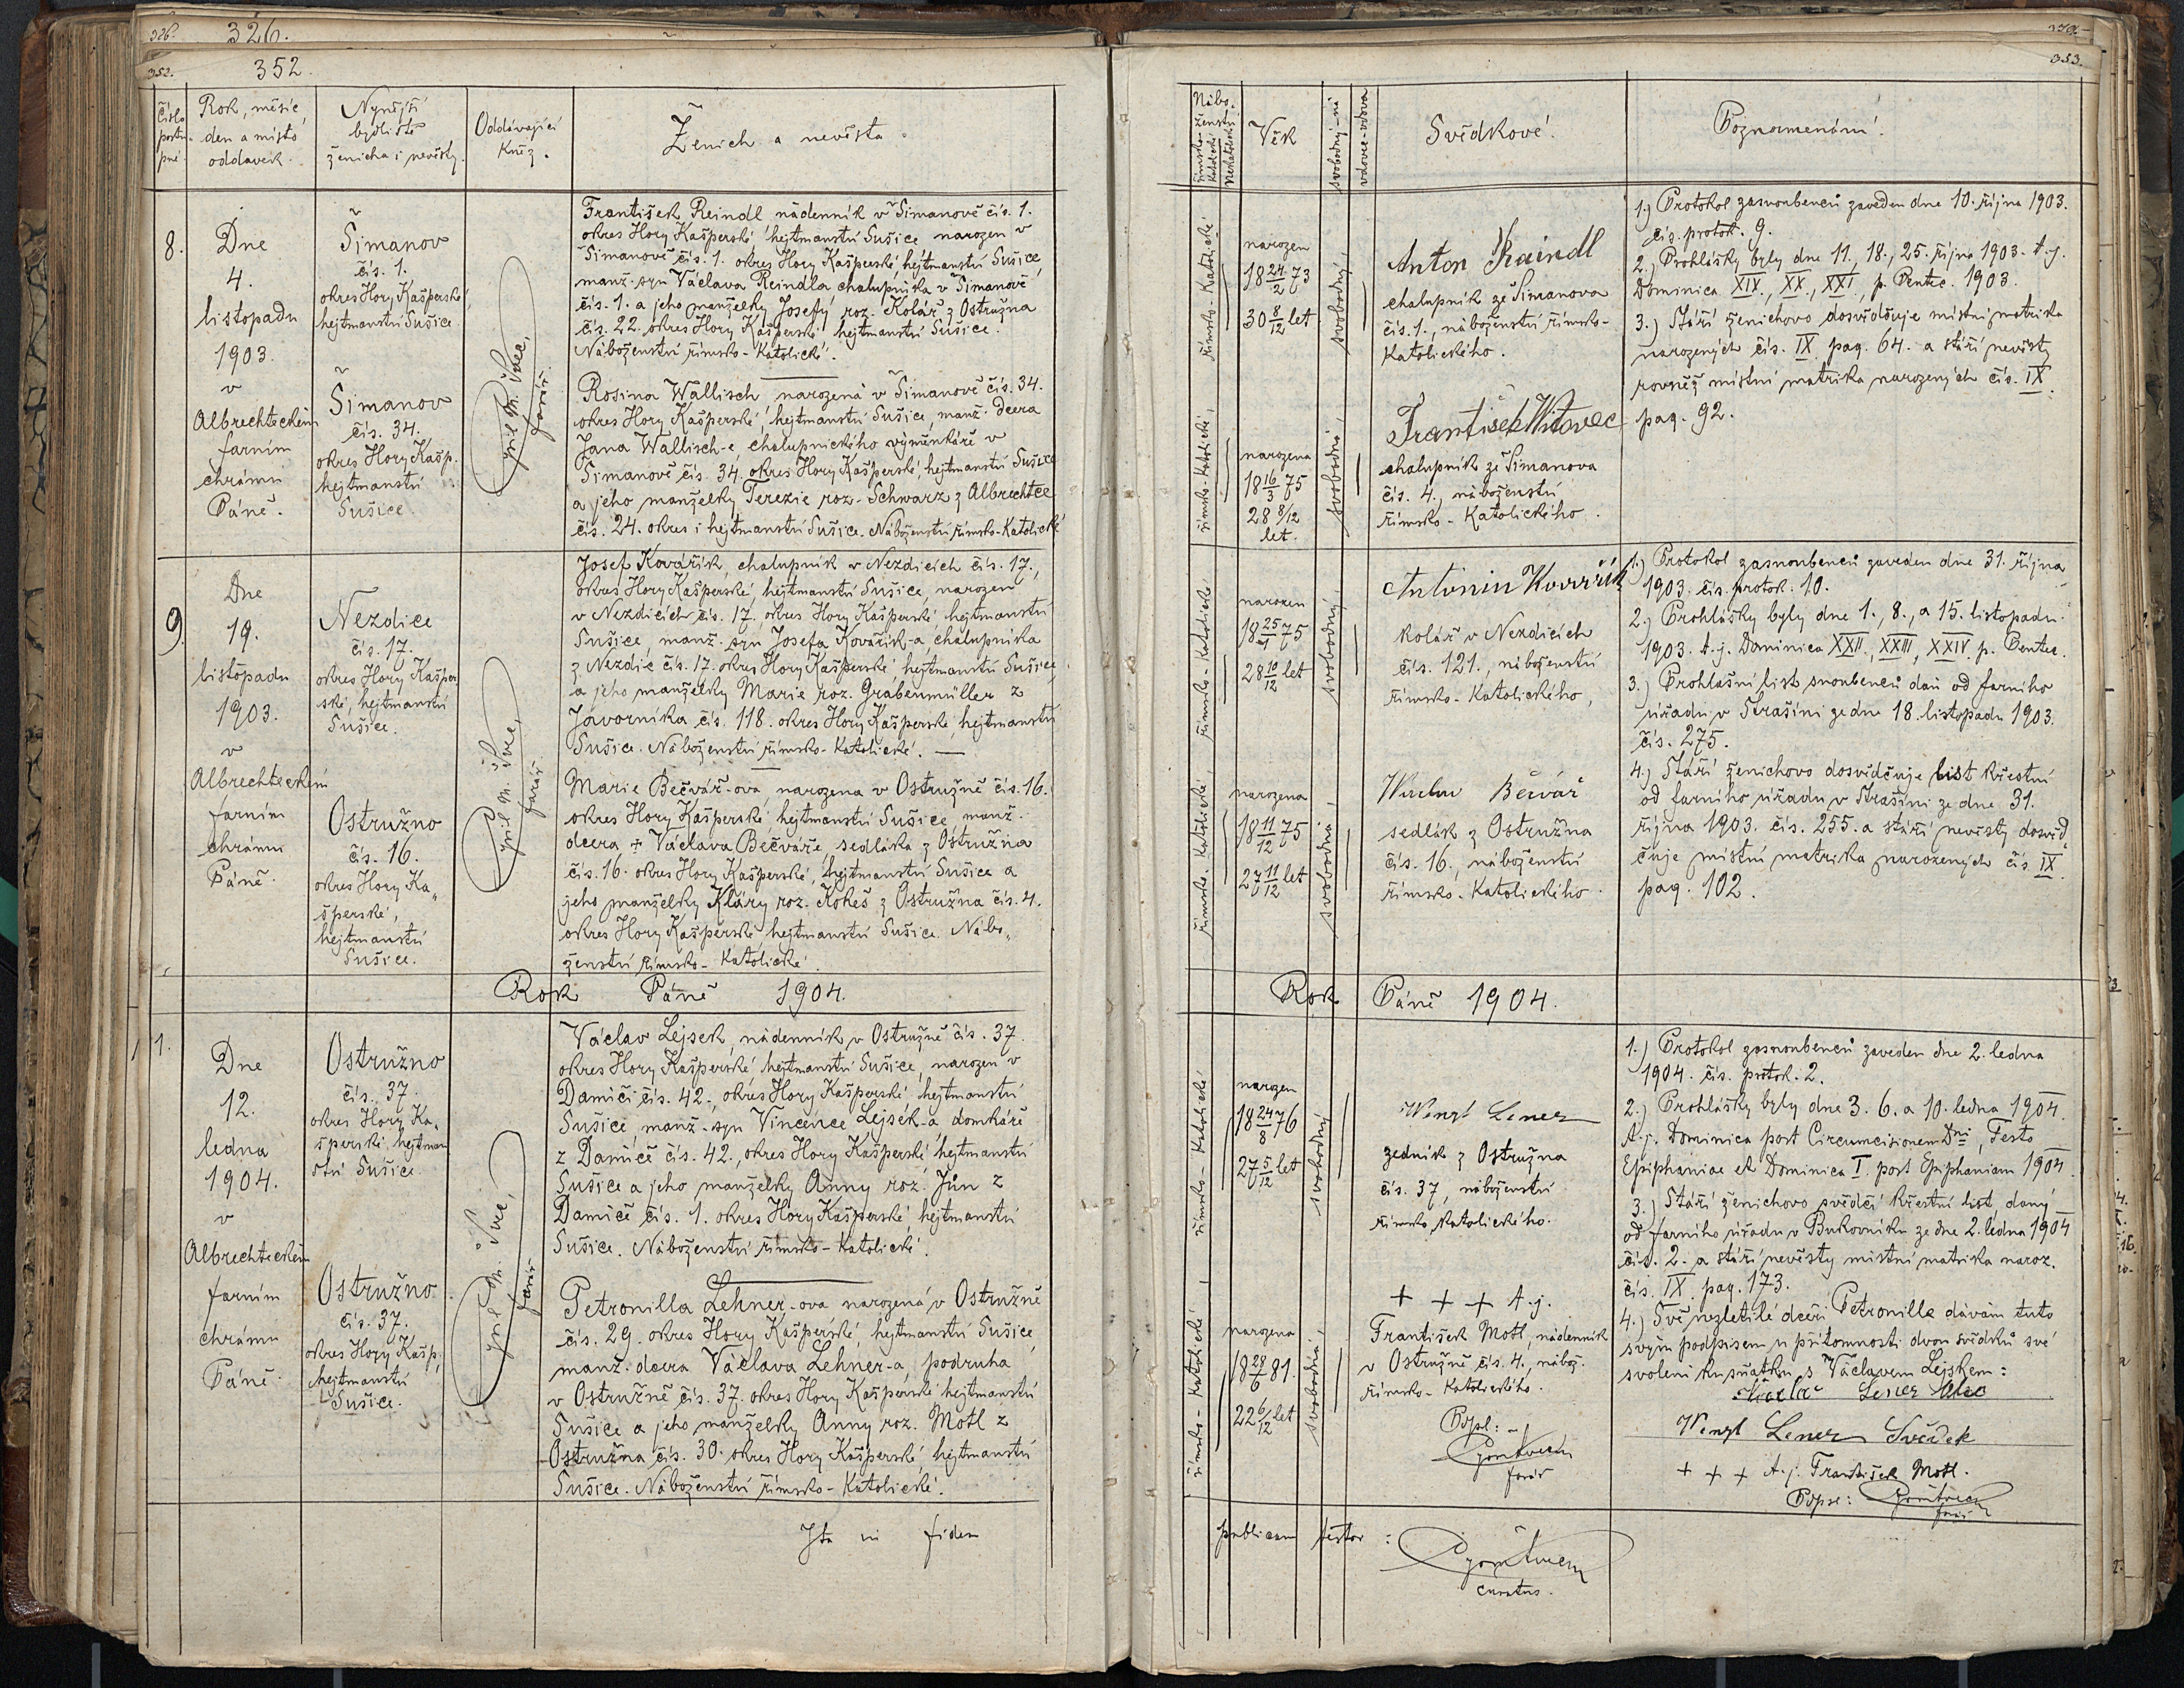 326.
326.
352.
352.
Číslo
postu-
pné.
Rok, měsíc,
den a místo
oddavek.
Nynější
bydliště
ženicha i nevěsty.
Oddávající
kněz.
Ženich a nevěsta.
8.
Dne
4.
listopadu
1903.
v
Albrechteckém
farním
chrámu
Páně.
Šimanov
čís. 1.
okres Hory Kašperské,
hejtmanství Sušice.
Šimanov
čís. 34.
okres Hory Kašp.
hejtmanství
Sušice.
Cyril M. Švec,
farář.
František Reindl nádenník v Šimanově čís. 1.
okres Hory Kašperské, hejtmanství Sušice, narozen v
Šimanově čís. 1. okres Hory Kašperské, hejtmanství Sušice,
manž. syn Václava Reindla chalupníka v Šimanově
čís. 1. a jeho manželky Josefy roz. Kolář z Ostružna
čís. 22. okres Hory Kašperské hejtmanství Sušice.
Náboženství římsko-katolické.
Rosina Wallisch narozená v Šimanově čís. 34.
okres Hory Kašperské, hejtmanství Sušice, manž. dcera
Jana Wallisch-e, chalupnického výměnkáře v
Šimanově čís. 34. okres Hory Kašperské, hejtmanství Sušice
a jeho manželky Terezie roz. Schwarz z Albrechtce
čís. 24. okres i hejtmanství Sušice. Náboženství římsko-katolické
9.
Dne
19.
listopadu
1903.
v
Albrechteckém
farním
chrámu
Páně.
Nezdice
čís. 17.
okres Hory Kašper-
ské, hejtmanství
Sušice.
Ostružno
čís. 16.
okres Hory Ka„
šperské,
hejtmanství
Sušice.
Cyril M. Švec,
farář
Josef Kovářík, chalupník v Nezdicích čís. 17.,
okres Hory Kašperské, hejtmanství Sušice, narozen
v Nezdicích čís. 17. okres Hory Kašperské hejtmanství
Sušice, manž. syn Josefa Kovařík-a, chalupníka
z Nezdic čís. 17. okres Hory Kašperské, hejtmanství Sušice,
a jeho manželky Marie roz. Grabenmüller z
Javorníka čís. 118. okres Hory Kašperské, hejtmanství
Sušice. Náboženství římsko-katolické. —
Marie Bečvář-ova, narozena v Ostružně čís. 16.
okres Hory Kašperské, hejtmanství Sušice, manž.
dcera + Václava Bečváře sedláka z Ostružna
čís. 16. okres Hory Kašperské, hejtmanství Sušice a
jeho manželky Kláry roz. Kokeš z Ostružna čís. 4.
okres Hory Kašperské hejtmanství Sušice. Nábo„
ženství římsko-katolické.
Rok Páně 1904.
1.
Dne
12.
ledna
1904.
v
Albrechteckém
farním
chrámu
Páně.
Ostružno
čís. 37.
okres Hory Ka„
šperské hejtman
ství Sušice.
Ostružno.
čís. 37.
okres Hory Kašp.,
hejtmanství
Sušice.
Cyril M. Švec,
farář
Václav Lejsek, nádenník v Ostružně čís. 37.
okres Hory Kašperské hejtmanství Sušice, narozen v
Damíči čís. 42., okres Hory Kašperské hejtmanství
Sušice, manž. syn Vincence Lejsek-a, domkáře
z Damíče čís. 42., okres Hory Kašperské, hejtmanství
Sušice a jeho manželky Anny roz. Jůn z
Damíče čís. 1. okres Hory Kašperské, hejtmanství
Sušice. Náboženství římsko-katolické.
Petronilla Lehner-ova narozená v Ostružně
čís. 29. okres Hory Kašperské, hejtmanství Sušice,
manž. dcera Václava Lehner-a, podruha
v Ostružně čís. 37. okres Hory Kašperské hejtmanství
Sušice a jeho manželky Anny roz. Motl z
Ostružna čís. 30. okres Hory Kašperské hejtmanství
Sušice. Náboženství římsko-katolické.
Ita in fidem
353.
Nábo„
ženství
římsko-
katolické
nekatolické
Věk
svobodný-ná
vdovec-vdova
Svědkové.
Poznamenání.
římsko-katolické,
narozen
18 24/2 73
30 8/12 let
svobodný,
Anton Raindl
chalupník ze Šimanova
čís. 1., náboženství římsko-
katolického.
římsko-katolické,
narozena
18 16/3 75
28 8/12
let.
svobodná,
František Witovec
chalupník ze Šimanova
čís. 4., náboženství
římsko-katolického.
1.) Protokol zasnoubenců zaveden dne 10. října 1903.
čís. protok. 9.
2.) Prohlášky byly dne 11., 18., 25. října 1903. t.j.
Dominica XIX., XX., XXI., p. Pentec. 1903.
3.) Stáří ženichovo dosvědčuje místní matrika
narozených čís. IX pag. 64. a stáří nevěsty
rovněž místní matrika narozených čís. IX.
pag. 92.
římsko-katolické
narozen
18 25/1 75
28 10/12 let
svobodný,
Antonin Kovařík
kolář v Nezdicích
čís. 121., náboženství
římsko-katolického,
římsko-katolické,
narozena
18 11/12 75
27 11/12 let
svobodná,
Bečvář
sedlák z Ostružna
čís. 16., náboženství
římsko-katolického.
1.) Protokol zasnoubenců zaveden dne 31. října
1903. čís. protok. 10.
2.) Prohlášky byly dne 1., 8., a 15. listopadu
1903. t.j. Dominica XXII., XXIII, XXIV. p. Pentec.
3.) Prohlašní list snoubenců dán od farního
úřadu v Strašíni ze dne 18. listopadu 1903.
čís. 275.
4.) Stáří ženichovo dosvědčuje list křestní
od farního úřadu v Strašíni ze dne 31.
října 1903. čís. 255. a stáří nevěsty dosvěd„
čuje místní matrika narozených čís. IX.
pag. 102.
Rok Páně 1904.
římsko-katolické
narozen
18 24/8 76
27 5/12 let
svobodný
Wenzl Lener
zedník z Ostružna
čís. 37, náboženství
římsko katolického.
římsko-katolické
narozena
18 28/6 81.
22 6/12 let
svobodná,
+ + + t.j.
František Motl, nádenník
v Ostružně čís. 4., nábož.
římsko-katolického.
Popsl: —
farář
1.) Protokol zasnoubenců zaveden dne 2. ledna
1904. čís. protok. 2.
2.) Prohlášky byly dne 3. 6. a 10. ledna 1904.
t.j. Dominica post Circumcisionem Dni, Festo
Epiphaniae et Dominica I. post Epiphaniam 1904.
3.) Stáří ženichovo svědčí křestní list, daný
od farního úřadu v Bukovníku ze dne 2. ledna 1904
čís. 2. a stáří nevěsty místní matrika naroz.
čís. IX. pag. 173.
4.) Své nezletilé dceři Petronille dávám tuto
svým podpisem u přítomnosti dvou svědků své
svolení ku sňatku s Václavem Lejskem:
Lener
Wenzl Lener Svědek
+ + + t.j. František Motl.
Popsl:
farář
publicam testor:
curatus.